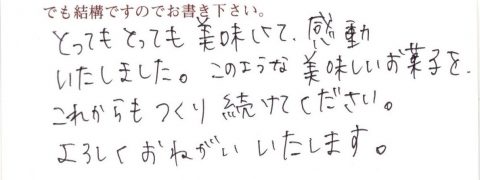 でも結構ですのでお書き下さい。
とってもとっても美味しくて、感動
いたしました。このような美味しいお菓子を、
これからもつくり続けてください。
よろしくおねがいいたします。